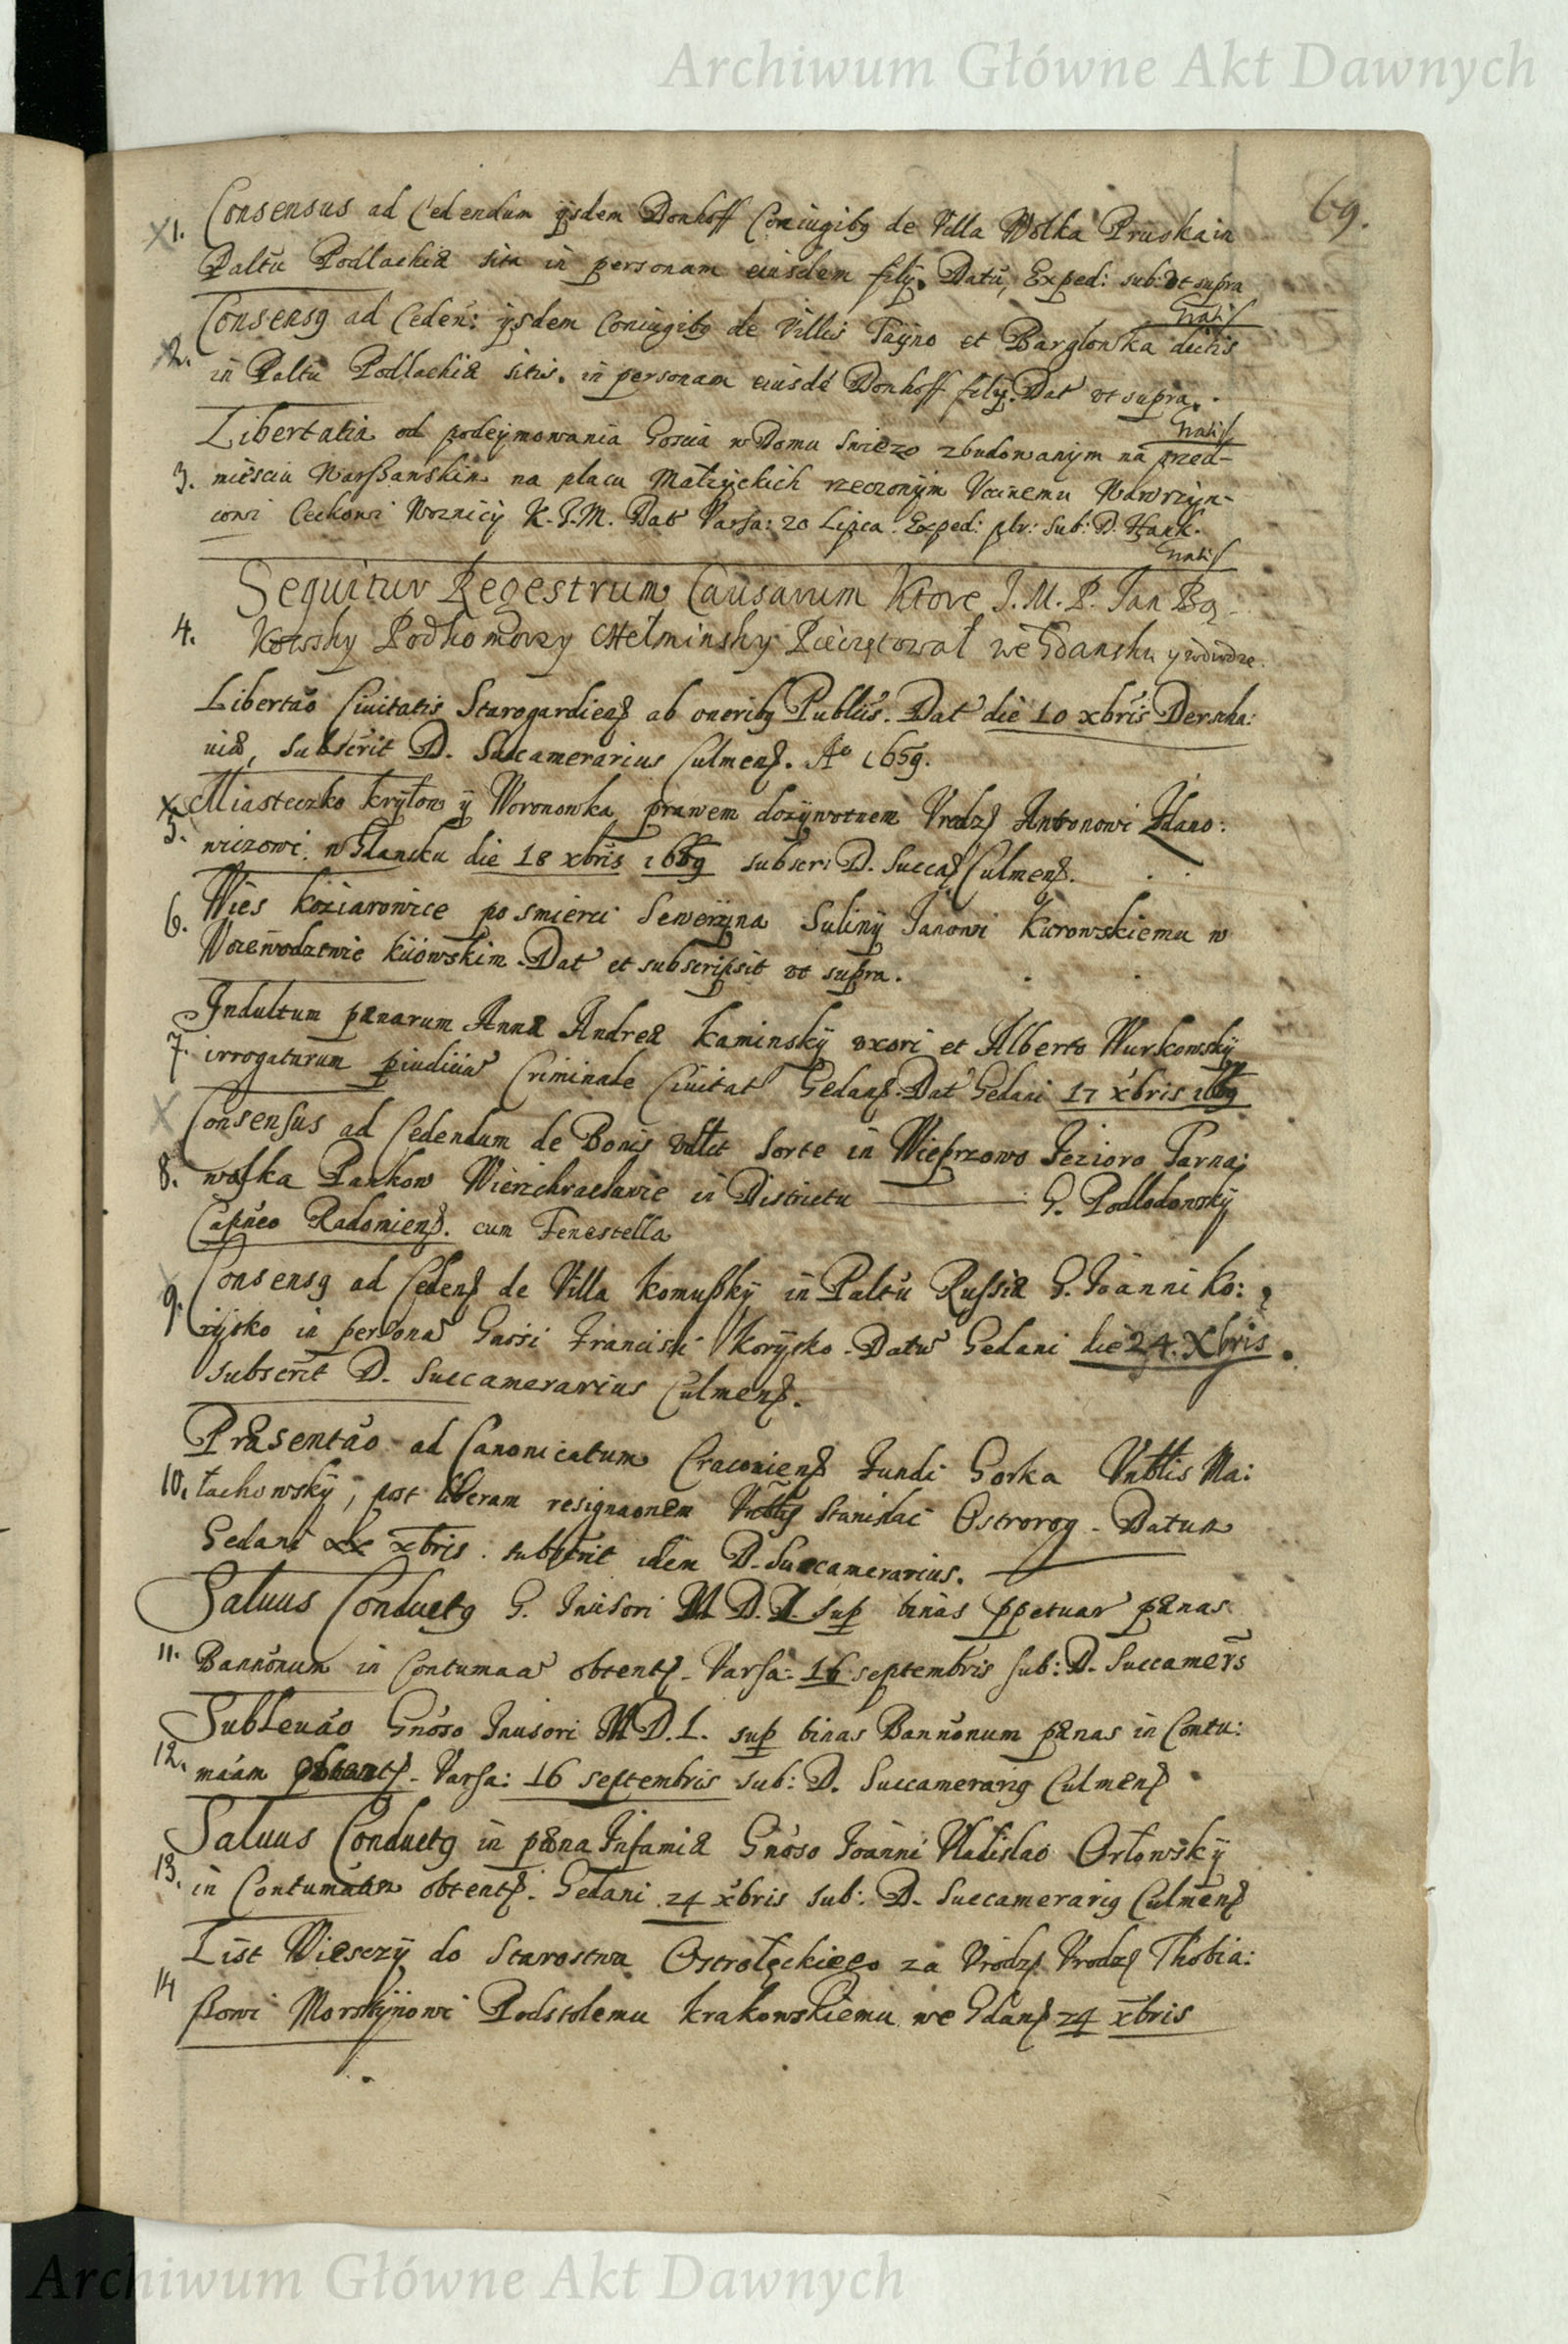 Archiwum Główne Akt Dawnych
69.
X1. Consensus ad Cedendum ijsdem Donhoff Coniugibg de Villa Wolka Pruska in
Paltu Podlachiæ sita in personam eiusdem filij. Datu, Exped: sub: vt supra
Gratis
X2. Consensg ad Ceden: ijsdem Coniugibg de Villis Tayno et Barglowska dictis
in Paltu Podlachiæ sitis. in personam eiusde Donhoff filij. Dat vt supra.
Gratis
Libertatia od podeymowania Goscia w Domu swiezo zbudowanym na przed-
3. miesciu Warszawskim na placu Malzyckich rzeczonym Vccinemu Wawrzyn-
cowi Cechowi Woznicy K.J.M. Dat Varsa: 20 Lipca. Exped: plr: sub: D. Hank.
Gratis
Sequitur Regestrum Causarum Ktore J.M.P. Jan Bą-
4. kowsky Podkomorzy Chełminsky Pieczętował we Gdansku y wdrodze.
Libertao Ciuitatis Starogardiens ab oneribg Publiis. Dat die 10 xbris Derscha:
uiæ, subscrit D. Succamerarius Culmens. Ao 1659.
X Miasteczko Kryłow y Woronowka prawem dozywotnem Vrodz Antonowi Zdano:
5. wiczowi. w Gdancku die 18 xbris 1659 subscr: D. Succas Culmens.
6. Wies Koziarowice po smierci Seweryna Suliny Janowi Kurowskiemu w
Woiewodztwie kiiowskim. Dat et subscripsit vt supra.
Indultum pænarum Annæ Andreæ Kaminsky vxori et Alberto Wurkowsky
7. irrogatarum p iudiciu Criminale Ciuitat Gedans. Dat Gedani 17 xbris 1659
X Consensus ad Cedendum de Bonis Sorte in Wieprzowo Jezioro Tarna:
8. wolka Pankow Wierzchrachowie in Districtu G. Podlodowsky
Capneo Radomiens. cum Fenestella
9. Consensg ad Cedens de Villa Komuszky in Paltu Russiæ G. Joanni Ko:
rysko in persona Gnosi Francisci Korysko. Datu Gedani die 24. Xbris.
subscrit D. Succamerarius Culmens.
Præsentao ad Canonicatum Cracouiens Fundi Gorka Vnblis Ma:
10. lachowsky, post liberam resignaonem Vnblis Stanislai Ostrorog. Datum
Gedani xx xbris. subscrit idem D. Succamerarius.
Saluus Conductg G. Inuisori M.D.L. sup binas ppetuar pænas
11. Bannonum in Contumaa obtents. Varsa: 16 septembris sub: D. Succamers
Subleuao Gnoso Inuisori M.D.L. sup binas Bannonum pænas in Contu:
12. maam obtents. Varsa: 16 septembris sub: D. Succamerarig Culmens
Saluus Conductg in pæna Infamiæ Gnoso Joanni Vladislao Orłowsky
13. in Contumaam obtents. Gedani 24 xbris sub: D. Succamerarig Culmens
List Wieczy do Starostwa Ostrołęckiego za Vrodz Vrodz Thobia:
14 szowi Morskynowi Podstolemu Krakowskiemu. we Gdans 24 xbris
Archiwum Główne Akt Dawnych